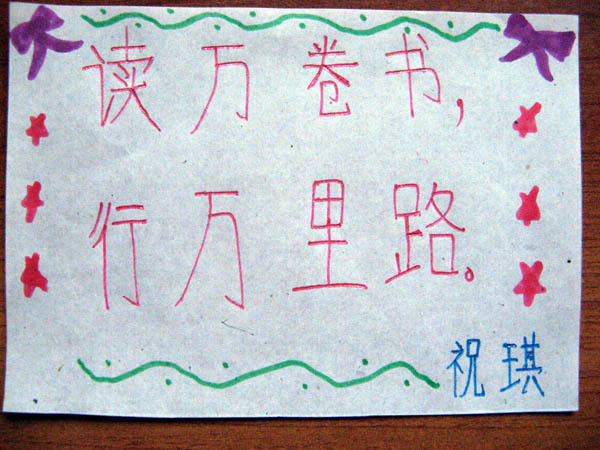 读万卷书，
行万里路。
祝琪